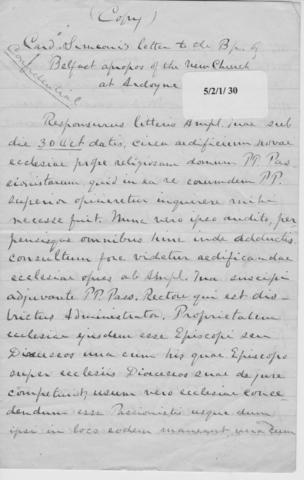 (Copy)
Card. Simeoni's letter to the Bp. of
Confidential
Belfast apropos of the New Church
at Ardoyne
5/2/1/30
Responsurus litteris Ampl. tuae sub
die 30 Oct datis, circa aedificium novae
ecclesiae prope religiosam domum PP. Pas
sionistarum quid in ea re eorumdem PP.
superior opinaretur inquirere mihi
necesse fuit. Nunc vero ipso audito, per
pensisque omnibus hinc inde adductis
consultum fore videtur aedificandae
ecclesiae opus ab Ampl. Tua suscipi
adjuvante PP. Pass. Rectore qui est dis-
trictus Administrator. Proprietatem
ecclesiae ejusdem esse Episcopi seu
Dioeceseos una cum his quae Episcopo
super ecclesiis Dioeceseos suae de jure
competunt, usum vero ecclesiae conce
dendum esse Passionistis usque dum
ipsi in loco eodem maneant, una cum